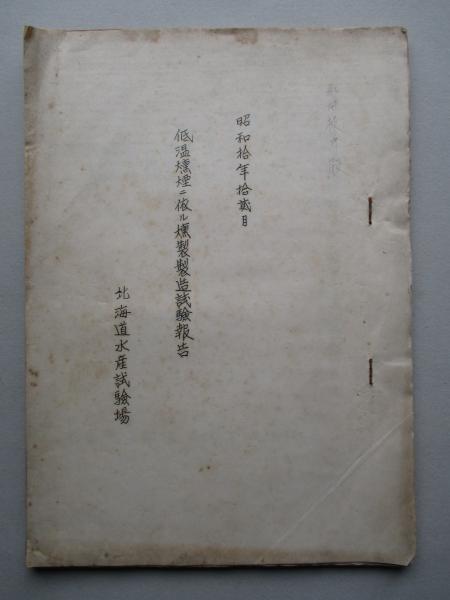 昭和拾年拾弐月
低温燻煙ニ依ル燻製製造試驗報告
北海道水産試驗場